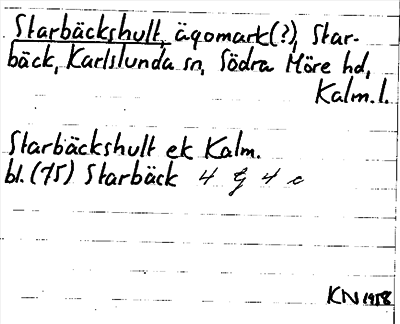 Starbäckshult, ägomark(?), Star-
bäck, Karlslunda sn, Södra Möre hd,
Kalm. l.
Starbäckshult ek Kalm.
bl. (75) Starbäck 4 g 4 c
KN 1958